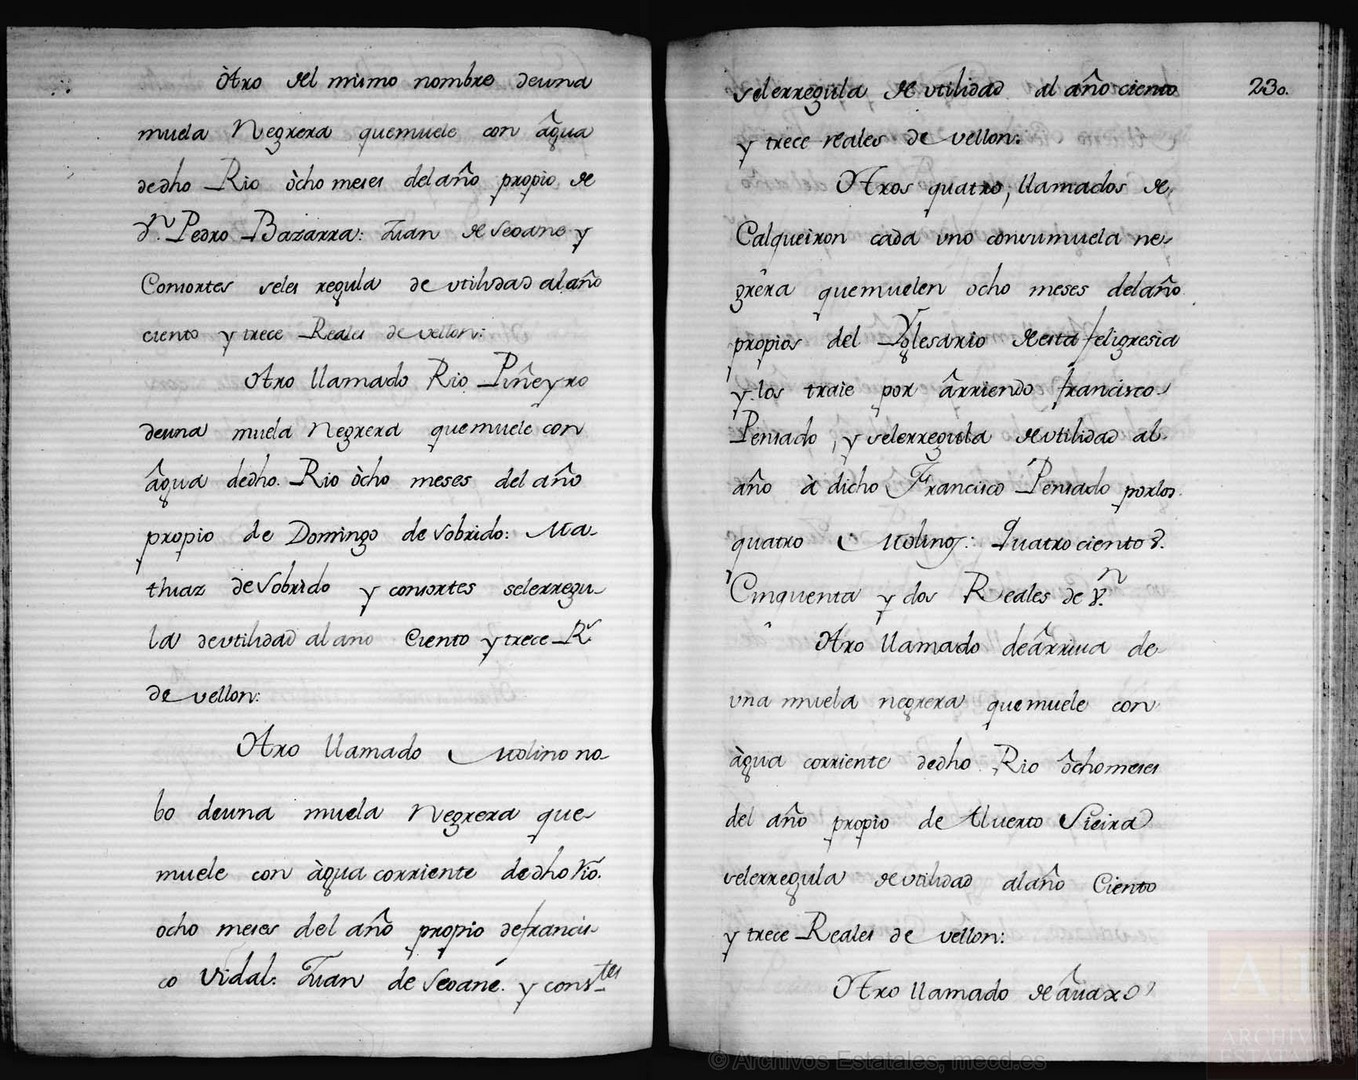 Otro del mismo nombre deuna
muela Negrera quemuele con âgua
dedho Rio òcho meses del año propio de
Dn. Pedro Bazarra: Juan de Seoane y
Consortes seles regula de vtilidad al año
ciento y trece Reales de vellon:
Otro llamado Rio Piñeyro
deuna muela Negrera quemuele con
âgua dedho. Rio òcho meses del año
propio de Domingo de Sobrido: Ma-
thias de Sobrido y consortes selerregu-
la devtilidad al ano Ciento y trece Rs
de vellon:
Otro llamado Molino no-
bo deuna muela Negrera que-
muele con àgua corriente dedho Rio.
ocho meses del año propio defrancis-
co Vidal: Juan de Seoane. y constes
selerregula de vtilidad al año ciento
y trece reales de vellon:
Otros quatro, llamados de
Calqueiron cada vno consumuela ne-
grera quemuelen ocho meses delaño
propios del Yglesario deesta feligresia
y los traie por àrriendo francisco
Pensado, y selerregula devtilidad al
año à dicho Francisco Pensado porlos
quatro Molinos: Quatro ciento s.
Cinquenta y dos Reales de vn.
Otro llamado deàrriua de
vna muela negrera quemuele con
àgua corriente dedho Rio òchomeses
del año propio de Aluerto Vieira
selerregula devtilidad alaño Ciento
y trece Reales de vellon:
Otro llamado
230.
© Archivos Estatales, mecd.es
ARCHIVOS
ESTATALES